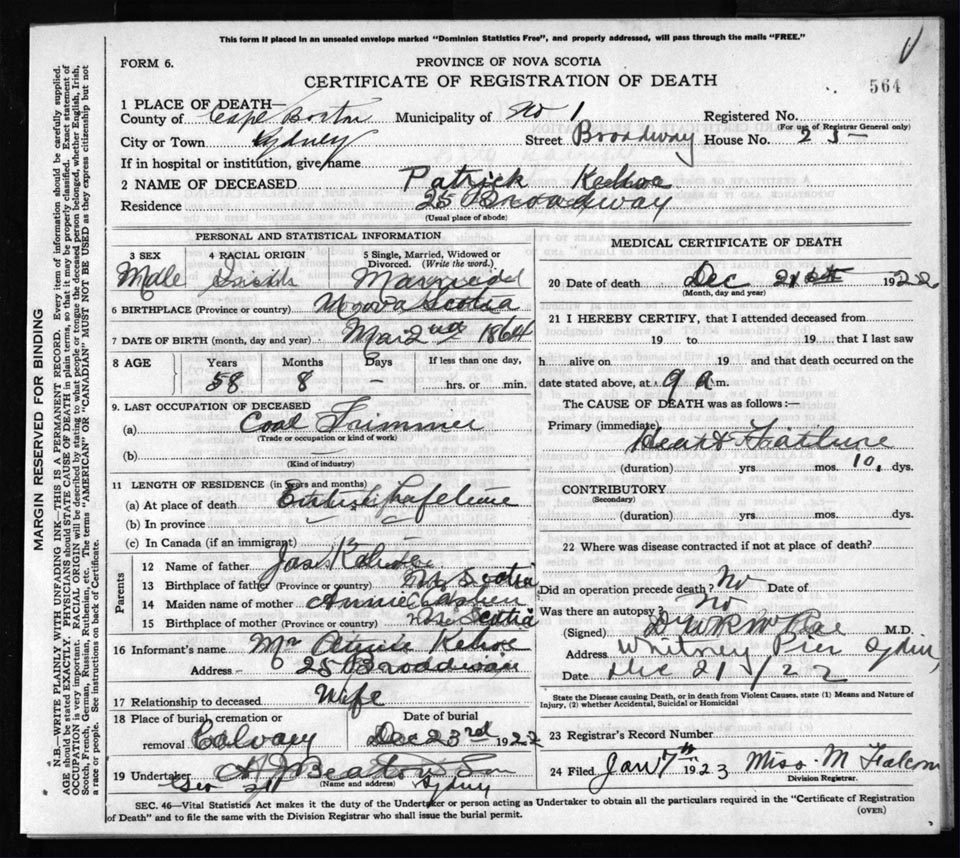 This form if placed in an unsealed envelope marked "Dominion Statistics Free", and properly addressed, will pass through the mails "FREE."
FORM 6.
PROVINCE OF NOVA SCOTIA
CERTIFICATE OF REGISTRATION OF DEATH
564
1 PLACE OF DEATH—
County of Cape Breton Municipality of No 1 Registered No.
(For use of Registrar General only)
City or Town Sydney Street Broadway House No. 25-
If in hospital or institution, give name
2 NAME OF DECEASED Patrick Kehoe
Residence 25 Broadway
(Usual place of abode)
PERSONAL AND STATISTICAL INFORMATION
3 SEX 4 RACIAL ORIGIN 5 Single, Married, Widowed or Divorced. (Write the word.)
Male Irish Married
6 BIRTHPLACE (Province or country) Nova Scotia
7 DATE OF BIRTH (month, day and year) Mar 2nd 1864
8 AGE Years Months Days If less than one day,
58 8 - hrs. or min.
9. LAST OCCUPATION OF DECEASED
(a) Coal Trimmer
(Trade or occupation or kind of work)
(b)
(Kind of industry)
11 LENGTH OF RESIDENCE (in years and months)
(a) At place of death
(b) In province
(c) In Canada (if an immigrant)
Parents
12 Name of father Jas Kehoe
13 Birthplace of father (Province or country) Nova Scotia
14 Maiden name of mother Annie
15 Birthplace of mother (Province or country) Nova Scotia
16 Informant's name Mrs Kehoe
Address 25 Broadway
17 Relationship to deceased Wife
18 Place of burial, cremation or removal Calvary
Date of burial Dec 23rd 1922
19 Undertaker A J Beaton & Son
(Name and address) Sydney
MEDICAL CERTIFICATE OF DEATH
20 Date of death Dec 21st 1922
(Month, day and year)
21 I HEREBY CERTIFY, that I attended deceased from
19 to 19 that I last saw
h alive on 19 and that death occurred on the
date stated above, at 9 a m.
The CAUSE OF DEATH was as follows:—
Primary (immediate) Heart Failure
(duration) yrs mos. 10, dys.
CONTRIBUTORY
(Secondary)
(duration) yrs mos. dys.
22 Where was disease contracted if not at place of death?
Did an operation precede death? No Date of
Was there an autopsy? No
(Signed) Dr M.D.
Address Whitney Pier
Date Dec 21/22
State the Disease causing Death, or in death from Violent Causes, state (1) Means and Nature of Injury, (2) whether Accidental, Suicidal or Homicidal
23 Registrar's Record Number
24 Filed Jan 7th 1923 Miss M
Division Registrar.
SEC. 46—Vital Statistics Act makes it the duty of the Undertaker or person acting as Undertaker to obtain all the particulars required in the "Certificate of Registration of Death" and to file the same with the Division Registrar who shall issue the burial permit.
(OVER)
MARGIN RESERVED FOR BINDING
N.B.—WRITE PLAINLY WITH UNFADING INK—THIS IS A PERMANENT RECORD. Every item of information should be carefully supplied.
AGE should be stated EXACTLY. PHYSICIANS should STATE CAUSE OF DEATH in plain terms, so that it may be properly classified. Exact statement of
OCCUPATION is very important. RACIAL ORIGIN will be described by stating to what people or tongue the deceased person belonged, whether English, Irish,
Scotch, French, German, Russian, Ruthenian, etc. The terms "AMERICAN" OR "CANADIAN" MUST NOT BE USED as they express citizenship but not
a race or people. See instructions on back of Certificate.